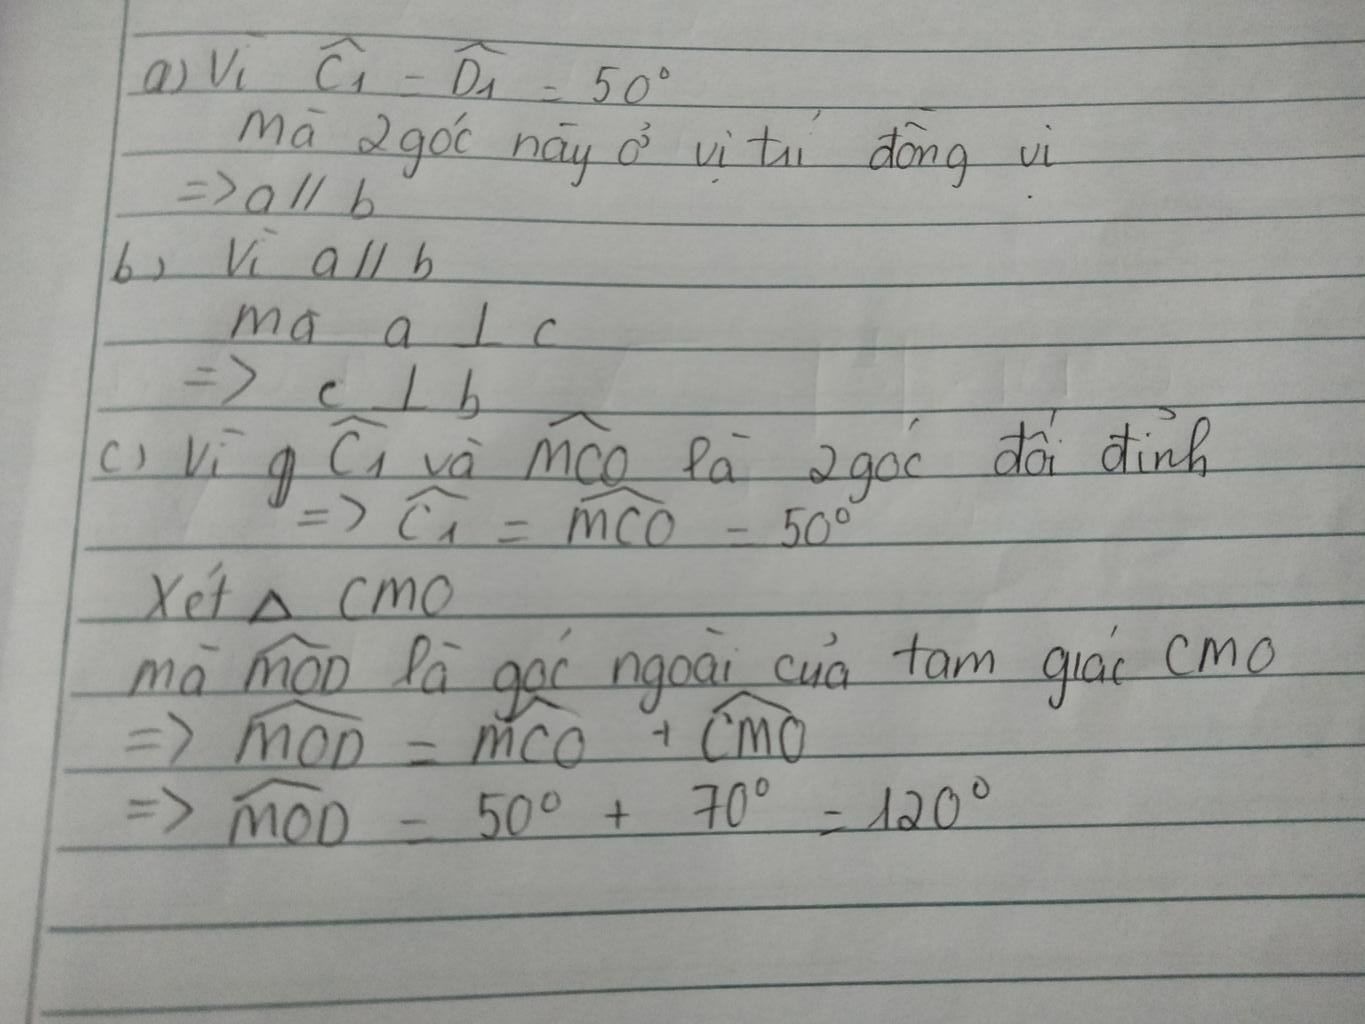 a) Vì Ĉ1 = D̂1 = 50°
mà 2 góc này ở vị trí đồng vị
=> a // b
b) Vì a // b
mà a ⊥ c
=> c ⊥ b
c) Vì g Ĉ1 và M̂CO là 2 góc đối đỉnh
=> Ĉ1 = M̂CO = 50°
Xét △ CMO
mà M̂OD là góc ngoài của tam giác CMO
=> M̂OD = M̂CO + ĈMO
=> M̂OD = 50° + 70° = 120°